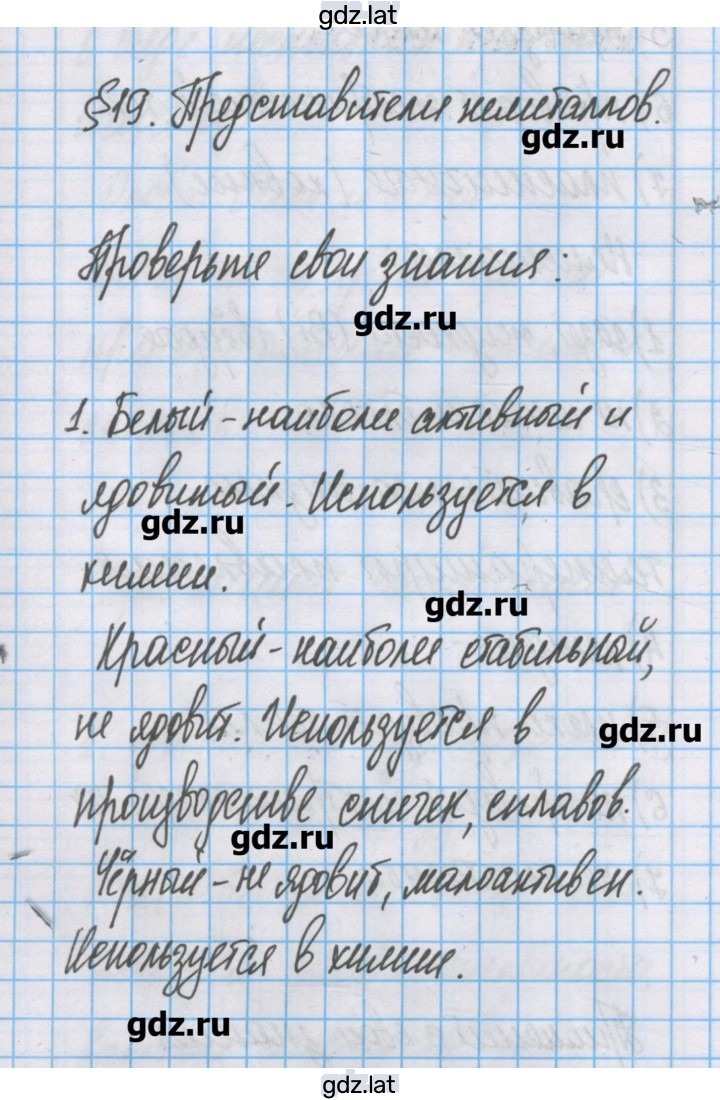 gdz.lat
§19. Представители неметаллов.
gdz.ru
Проверьте свои знания:
gdz.ru
1. Белый - наиболее активный и
ядовитый. Используется в
gdz.ru
химии.
gdz.ru
Красный - наиболее стабильной,
не ядовит. Используется в
gdz.ru
производстве спичек, сплавов.
gdz.ru
Чёрный - не ядовит, малоактивен.
Используется в химии.
gdz.ru
gdz.lat